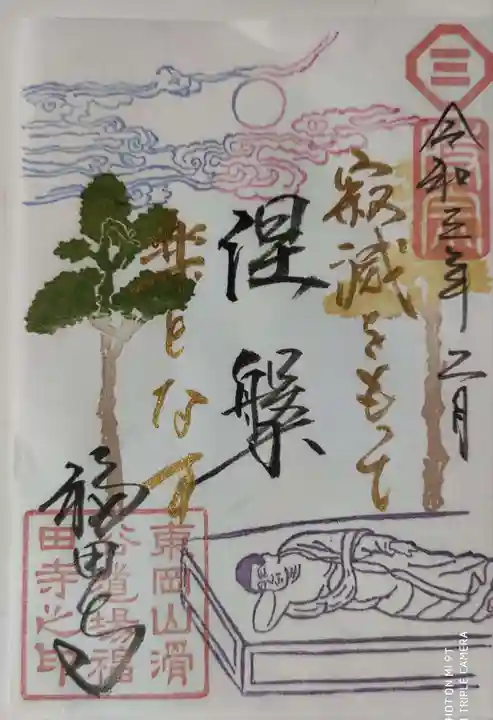 三
令和三年二月
寂滅をもって
涅槃
楽となす
福田寺
東岡山滑
谷道場福
田寺之印
SHOT ON MI 9T
AI TRIPLE CAMERA